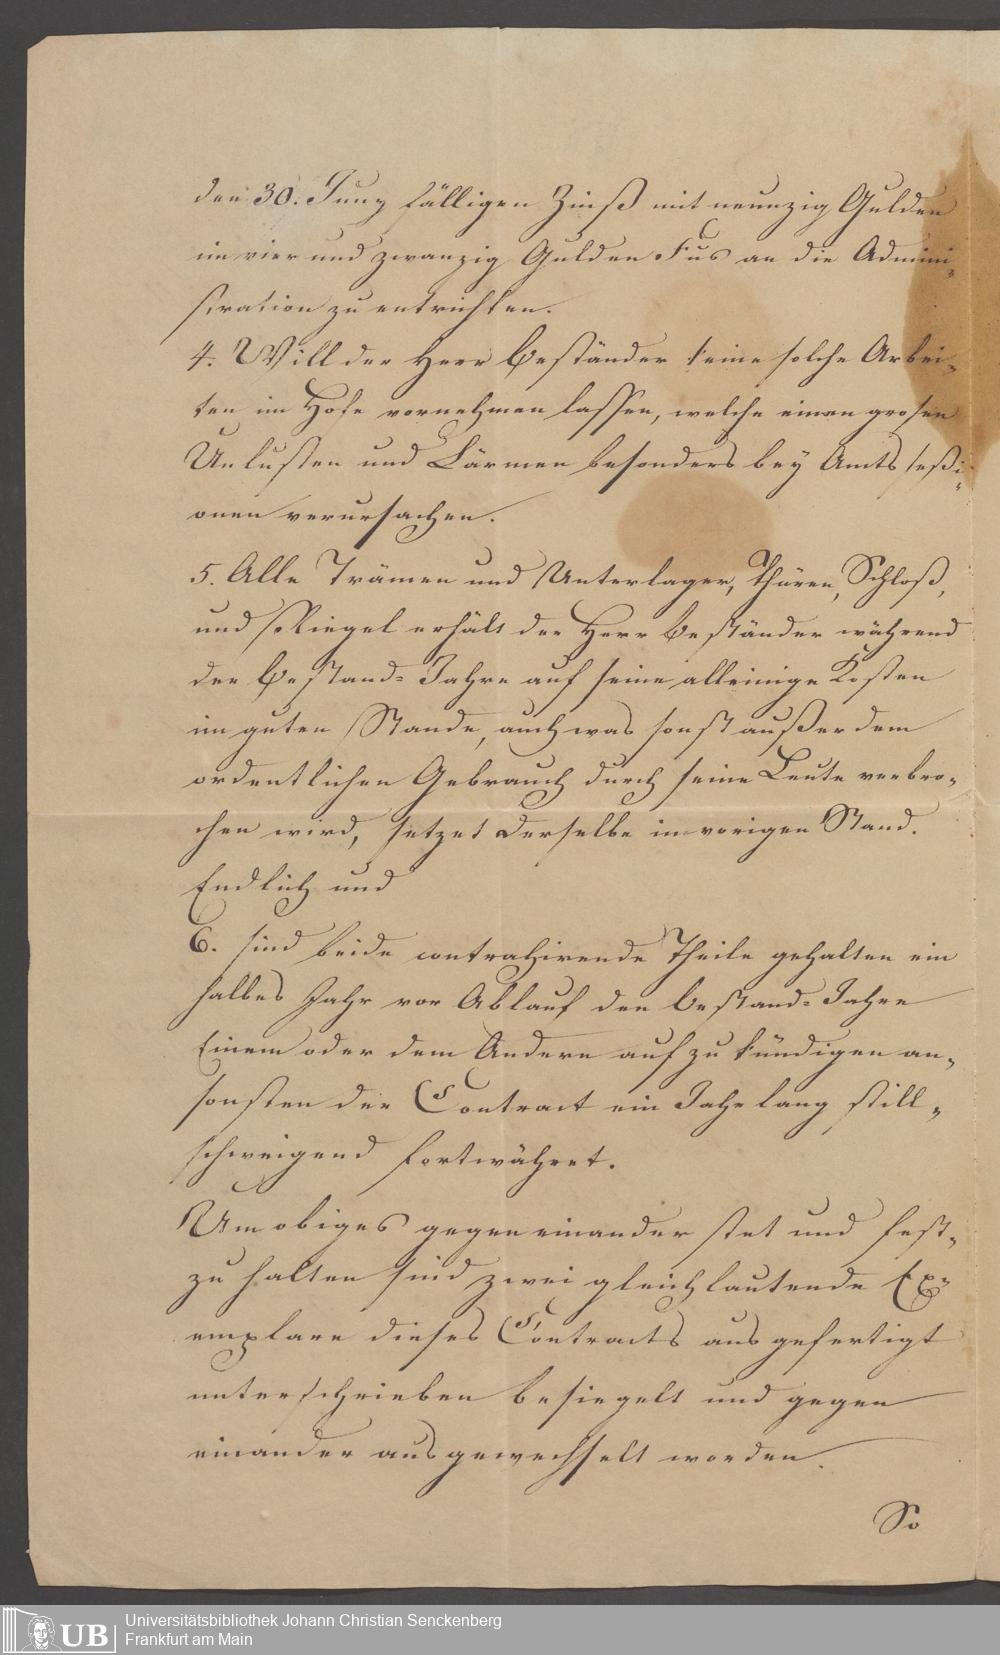 den 30. Juny fälligen Zinß mit neunzig Gulden
im vier und zwanzig Gulden Fus an die Admini-
stration zu entrichten.
4. Will der Herr Beständer keine solche Arbei-
ten im Hofe vornehmen lassen, welche einen grosen
Unlusten und Lärmen besonders bey Amts seßi-
onen verursachen.
5. Alle Trämen und Unterlager, Thüren, Schloß,
und Riegel erhält der Herr Beständer während
der Bestand-Jahre auf seine alleinige Kosten
im guten Stande, auch was sonst außer dem
ordentlichen Gebrauch durch seine Leute verbro-
chen wird, setzet derselbe im vorigen Stand.
Endlich und
6. sind beide contrahirende Theile gehalten ein
halbes Jahr vor Ablauf der Bestand-Jahre
Einem oder dem Andern aufzukündigen an-
sonsten der Contract ein Jahr lang still-
schweigend fortwähret.
Um obiges gegen einander stet und fest-
zu halten sind zwei gleichlautende Ex-
emplare dieses Contracts ausgefertigt
unterschrieben besiegelt und gegen
einander ausgewechselt worden.
So
UB
Universitätsbibliothek Johann Christian Senckenberg
Frankfurt am Main